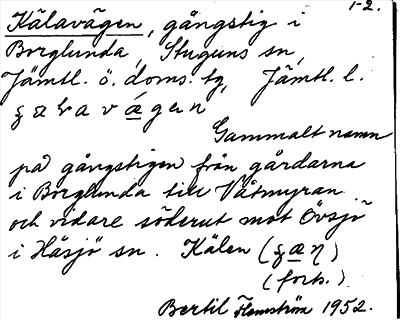 1-2.
Kälavägen, gångstig i
Borglunda, Stuguns sn,
Jämtl. ö. doms. tg, Jämtl. l.
Gammalt namn
på gångstigen från gårdarna
i Borglunda till Våtmyran
och vidare söderut mot Övsjö
i Häsjö sn. Kälen
(forts.)
Bertil Flemström 1952.